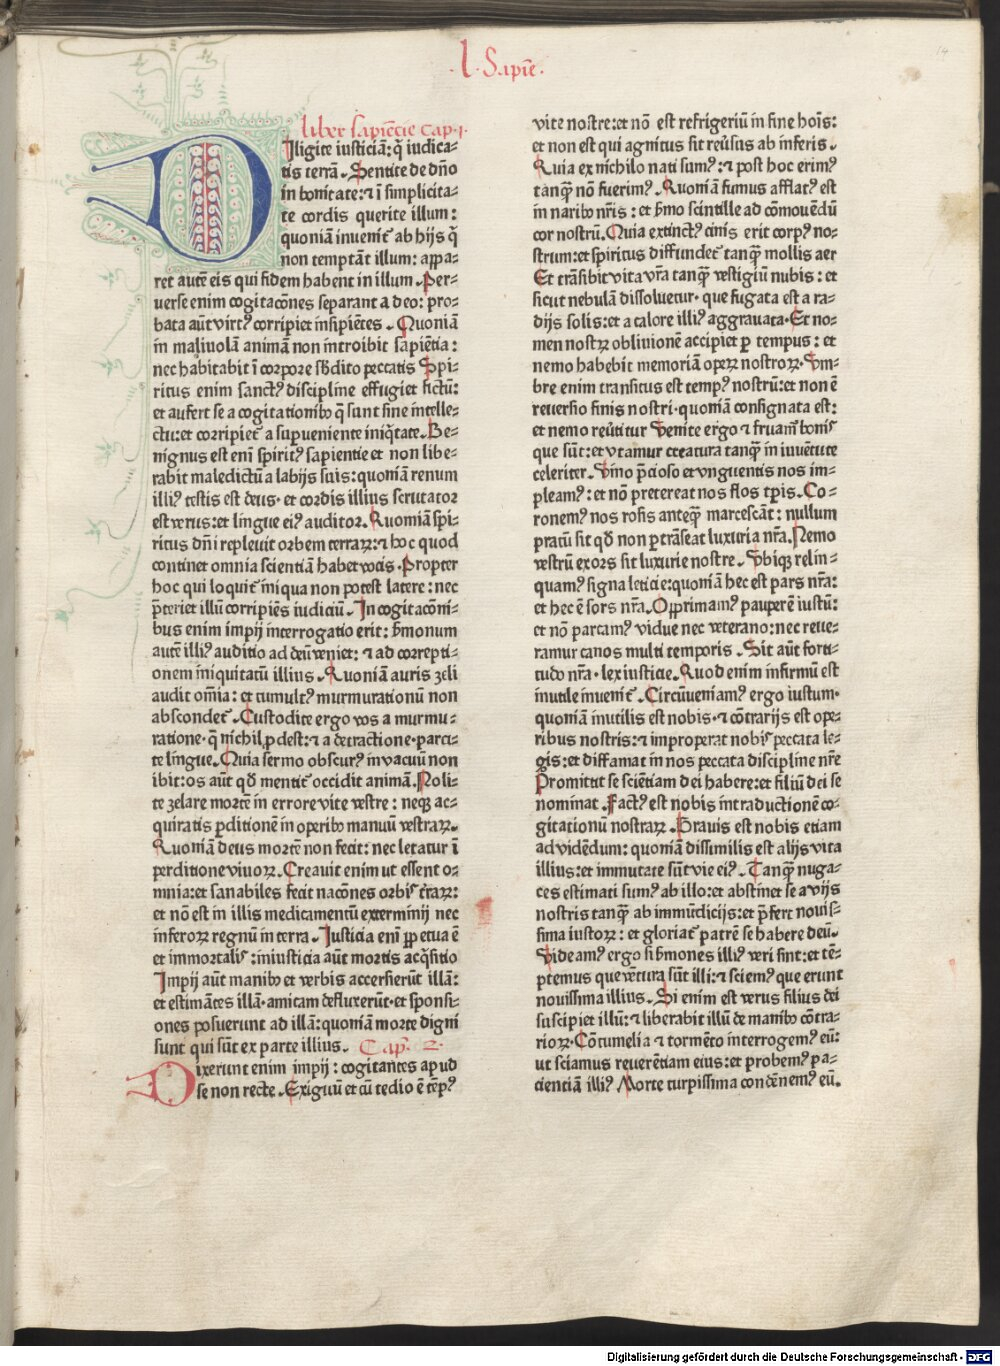 .l. Sapīe.
14
Liber sapiēcie Cap. 1.
Diligite iusticiā: q̄ iudica-
tis terrā. Sentite de dn̄o
in bonitate: ⁊ ī simplicita-
te cordis querite illum:
quoniā inuenit᷑ ab hijs q̄
non temptāt illum: appa-
ret autē eis qui fidem habent in illum. Per-
uerse enim cogitacōnes separant a deo: pro-
bata aūt virtꝰ corripiet insipiētes. Quoniā
in maliuolā animā non introibit sapiētia:
nec habitabit ī corpore sb̄dito peccatis Spi-
ritus enim sanctꝰ discipline effugiet fictū:
et aufert se a cogitationibꝫ q̄ sunt sine intelle-
ctu: et corripiet᷑ a superueniente iniq̄tate. Be-
nignus est enī spiritꝰ sapientie et non libe-
rabit maledictū a labijs suis: quoniā renum
illiꝰ testis est deus. et cordis illius scrutator
est verus: et lingue eiꝰ auditor. Quoniā spi-
ritus dn̄i repleuit orbem terraꝝ: ⁊ hoc quod
continet omnia scientiā habet vocis. Propter
hoc qui loquit᷑ iniqua non potest latere: nec
p̄teriet illū corripiēs iudiciū. In cogitacōni-
bus enim impij interrogatio erit: ẜmonum
autē illiꝰ auditio ad deū veniet: ⁊ ad correpti-
onem iniquitatū illius. Quoniā auris zeli
audit om̄ia: et tumultꝰ murmurationū non
abscondet᷑. Custodite ergo vos a murmu-
ratione. q̄ nichil ꝓdest: ⁊ a detractione. parci-
te lingue. Quia sermo obscurꝰ in vacuū non
ibit: os aūt qd̄ mentit᷑ occidit animā. Noli-
te zelare mortē in errore vite vestre: neqꝫ ac-
quiratis ꝑditionē in operibꝫ manuū vestraꝝ.
Quoniā deus mortē non fecit: nec letatur ī
ꝑditione viuoꝝ. Creauit enim ut essent o-
mnia: et sanabiles fecit nacōnes orbis t̄raꝝ:
et nō est in illis medicamentū exterminij nec
inferoꝝ regnū in terra. Justicia enī ꝑpetua ē
et immortalis: iniusticia aūt mortis acq̄sitio
Impij aūt manibꝫ et verbis accersierūt illā:
et estimātes illā. amicam defluxerūt. et sponsi-
ones posuerunt ad illā: quoniā morte digni
sunt qui sūt ex parte illius. Cap. 2.
Dixerunt enim impij: cogitantes apud
se non recte. Exiguū et cū tedio ē tēpꝰ
vite nostre: et nō est refrigeriū in fine hoīs:
et non est qui agnitus sit reūsus ab inferis.
Quia ex nichilo nati sumꝰ: ⁊ post hoc erimꝰ
tanqꝫ nō fuerimꝰ. Quoniā fumus afflatꝰ est
in naribꝫ nr̄is: et ẜmo scintille ad cōmouēdū
cor nostrū. Quia extinctꝰ cinis erit corpꝰ no-
strum: et spiritus diffundet᷑ tanqꝫ mollis aer
Et trāsibit vita vr̄a tanqꝫ vestigiū nubis: et
sicut nebulā dissoluetur. que fugata est a ra-
dijs solis: et a calore illiꝰ aggrauata. Et no-
men nostꝝ obliuionē accipiet ꝑ tempus: et
nemo habebit memoriā opeꝝ nostroꝝ. Vm-
bre enim transitus est tempꝰ nostrū: et non ē
reuersio finis nostri. quoniā consignata est:
et nemo reūtitur Venite ergo ⁊ fruamꝰ bonis
que sūt: et vtamur creatura tanqꝫ in iuuētute
celeriter. Vino p̄cioso et vnguentis nos im-
pleamꝰ: et nō pretereat nos flos tꝑis. Co-
ronemꝰ nos rosis anteqꝫ marcescāt: nullum
pratū sit qd̄ non ꝑtrāseat luxuria nr̄a. Nemo
vestrū exors sit luxurie nostre. Vbiqꝫ relin-
quamꝰ signa leticie: quoniā hec est pars nr̄a:
et hec ē sors nr̄a. Opprimamꝰ pauperē iustū:
et nō parcamꝰ vidue nec veterano: nec reue-
ramur canos multi temporis. Sit aūt forti-
tudo nr̄a. lex iusticie. Quod enim infirmū est
inutile inuenit᷑. Circūueniamꝰ ergo iustum.
quoniā inutilis est nobis. ⁊ cōtrarijs est ope-
ribus nostris: ⁊ improperat nobis peccata le-
gis: et diffamat in nos peccata discipline nr̄e
Promittit se sciētiam dei habere: et filiū dei se
nominat. Factꝰ est nobis in traductionē co-
gitationū nostraꝝ. Grauis est nobis etiam
ad vidēdum: quoniā dissimilis est alijs vita
illius: et immutate sūt vie eiꝰ. Tanqꝫ nuga-
ces estimati sumꝰ ab illo: et abstinet se a vijs
nostris tanqꝫ ab immūdicijs: et p̄fert nouis-
sima iustoꝝ: et gloriat᷑ patrē se habere deū.
Videamꝰ ergo si ẜmones illiꝰ veri sint: et tē-
ptemus que vētura sūt illi: ⁊ sciemꝰ que erunt
nouissima illius. Si enim est verus filius dei
suscipiet illū: ⁊ liberabit illū de manibꝫ cōtra-
rioꝝ. Cōtumelia ⁊ tormēto interrogemꝰ eū:
ut sciamus reuerētiam eius: et probemꝰ pa-
cientiā illiꝰ Morte turpissima condēnemꝰ eū.
Digitalisierung gefördert durch die Deutsche Forschungsgemeinschaft - DFG